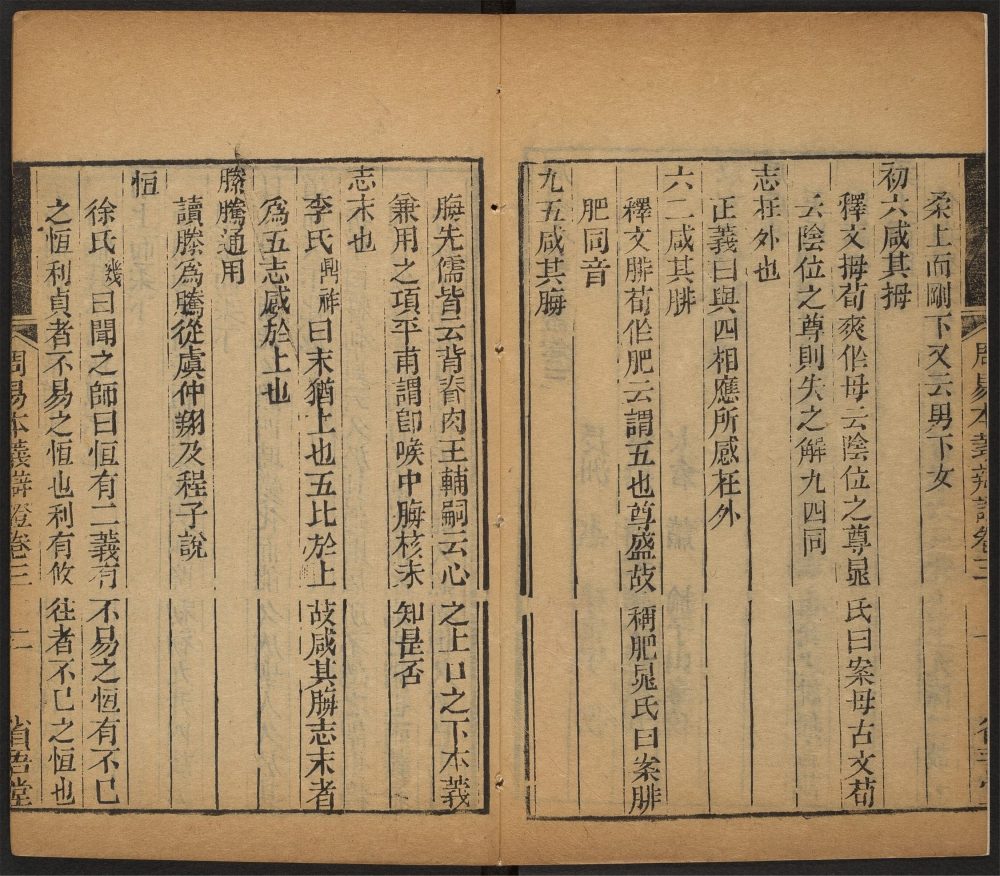 周易本義辯證卷三
一
柔上而剛下又云男下女
初六咸其拇
釋文拇荀爽作母云陰位之尊晁氏曰案母古文荀
云陰位之尊則失之解九四同
志在外也
正義曰與四相應所感在外
六二咸其腓
釋文腓荀作肥云謂五也尊盛故稱肥晁氏曰案腓
肥同音
九五咸其脢
脢先儒皆云背脊肉王輔嗣云心之上口之下本義
兼用之項平甫謂卽喉中脢核未知是否
志末也
李氏鼎祚曰末猶上也五比於上故咸其脢志末者
爲五志感於上也
滕騰通用
讀滕爲騰從虞仲翔及程子說
恒
徐氏幾曰聞之師曰恒有二義有不易之恒有不已
之恒利貞者不易之恒也利有攸往者不已之恒也
周易本義辯證卷三
二
省吾堂